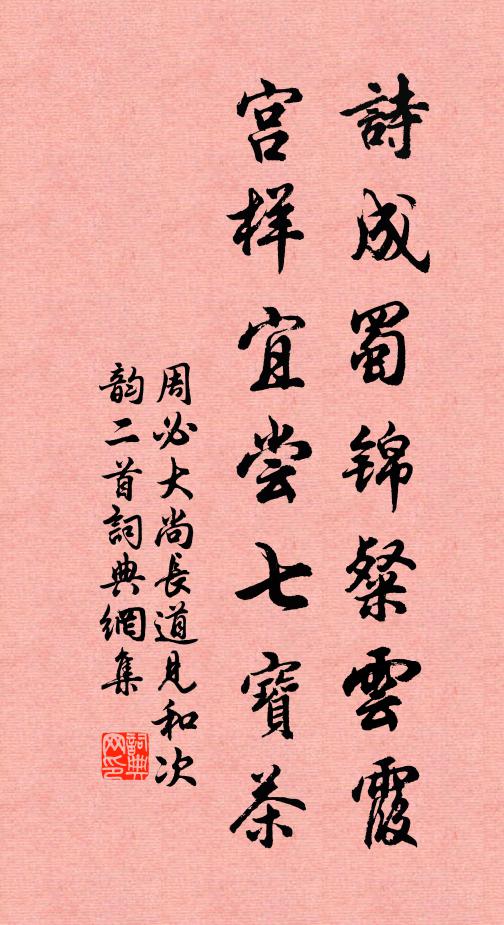 詩成蜀锦粲雲霞
宫样宜尝七寶茶
周必大尚長道見和次
韵二首詞典網集
詞典网印